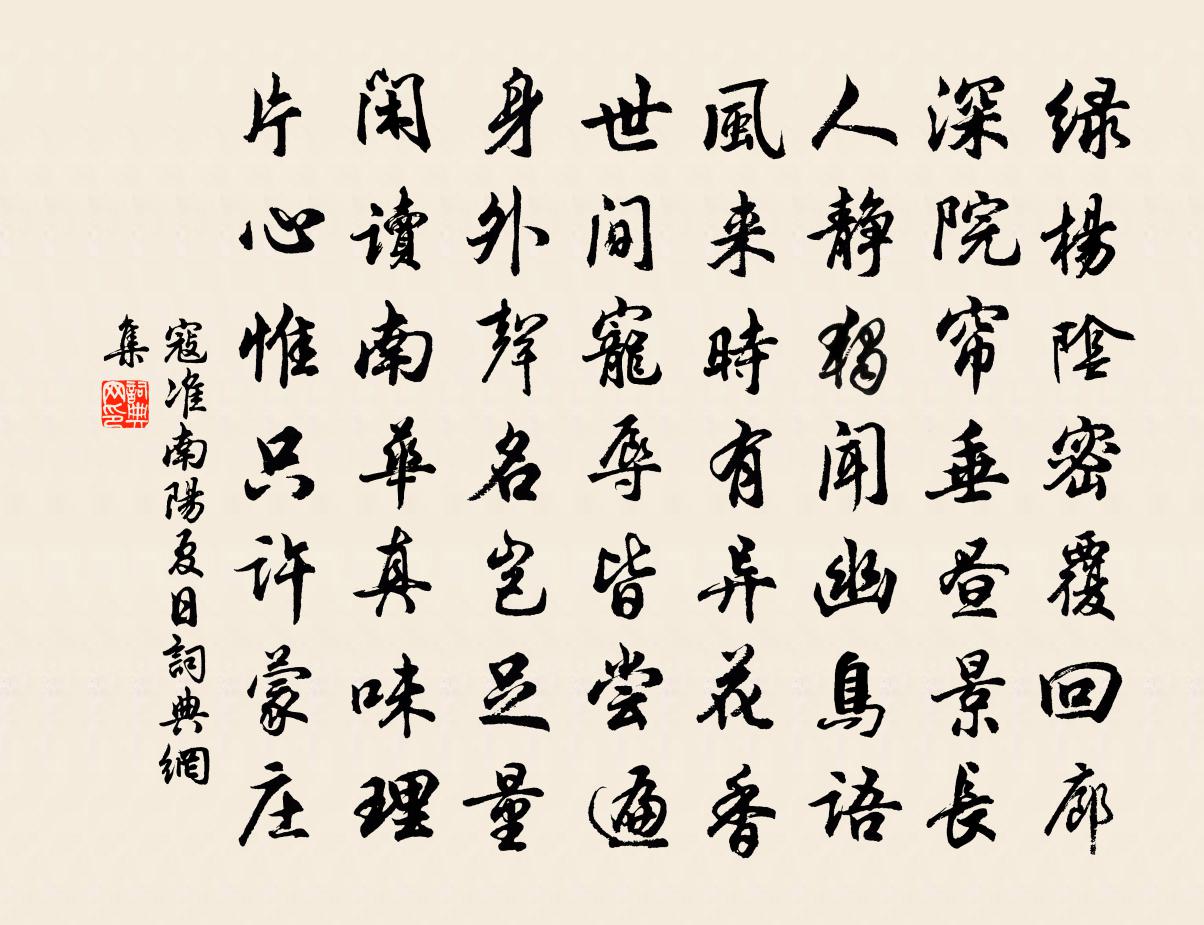 绿楊陰密覆回廊
深院帘垂昼景長
人静獨聞幽鳥語
風来時有异花香
世间寵辱皆尝遍
身外聲名岂足量
闲讀南華真味理
片心惟只许蒙庄
寇准南陽夏日詞典網
集
詞典
网印